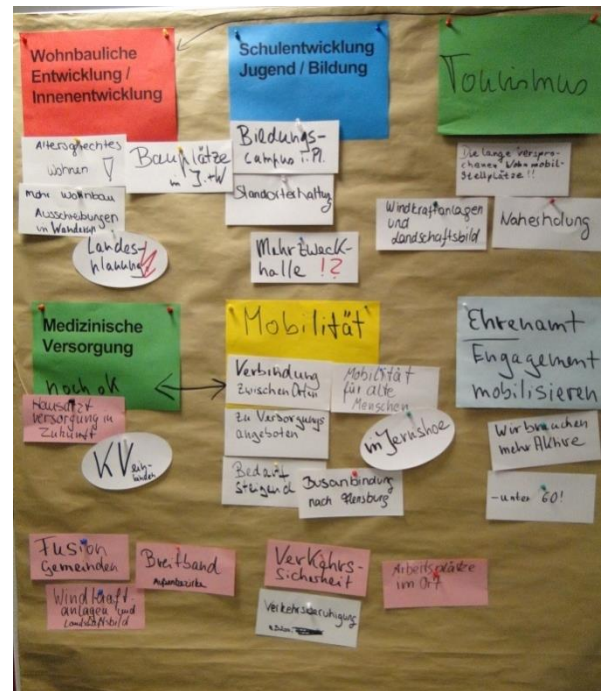 Wohnbauliche
Entwicklung /
Innenentwicklung
Altersgerechtes
wohnen !
Bauplätze
in J.+W
Mehr Wohnbau
Ausschreibungen
in Wanderup
Landes-
planung
Schulentwicklung
Jugend / Bildung
Bildungs-
campus
Standorterhaltung
Mehrzweck-
halle !?
Tourismus
Die lange verspro-
chenen Wohnmobil-
Stellplätze!!
Windkraftanlagen
und
Landschaftsbild
Naherholung
Medizinische
Versorgung
noch ok
Hausarzt
versorgung in
Zukunft
KV ein-
binden
Mobilität
Verbindung
zwischen Orten
Mobilität
für alte
Menschen
zu Versorgungs
angeboten
in Jerrishoe
Bedarf
steigend
Busanbindung
nach Flensburg
Ehrenamt
Engagement
mobilisieren
Wir brauchen
mehr Aktive
-unter 60!
Fusion
Gemeinden
Breitband
Windkraft-
anlagen und
Landschaftsbild
Verkehrs-
sicherheit
Verkehrsberuhigung
Arbeitsplätze
im Ort